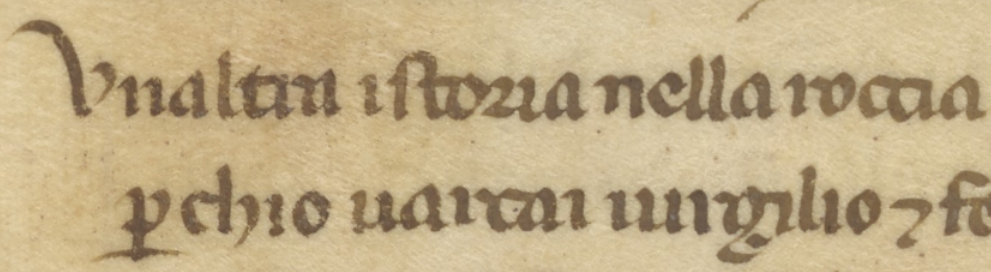 Vnaltra istoria nella roccia
ꝑ chio uarcai uirgilio ⁊ fe